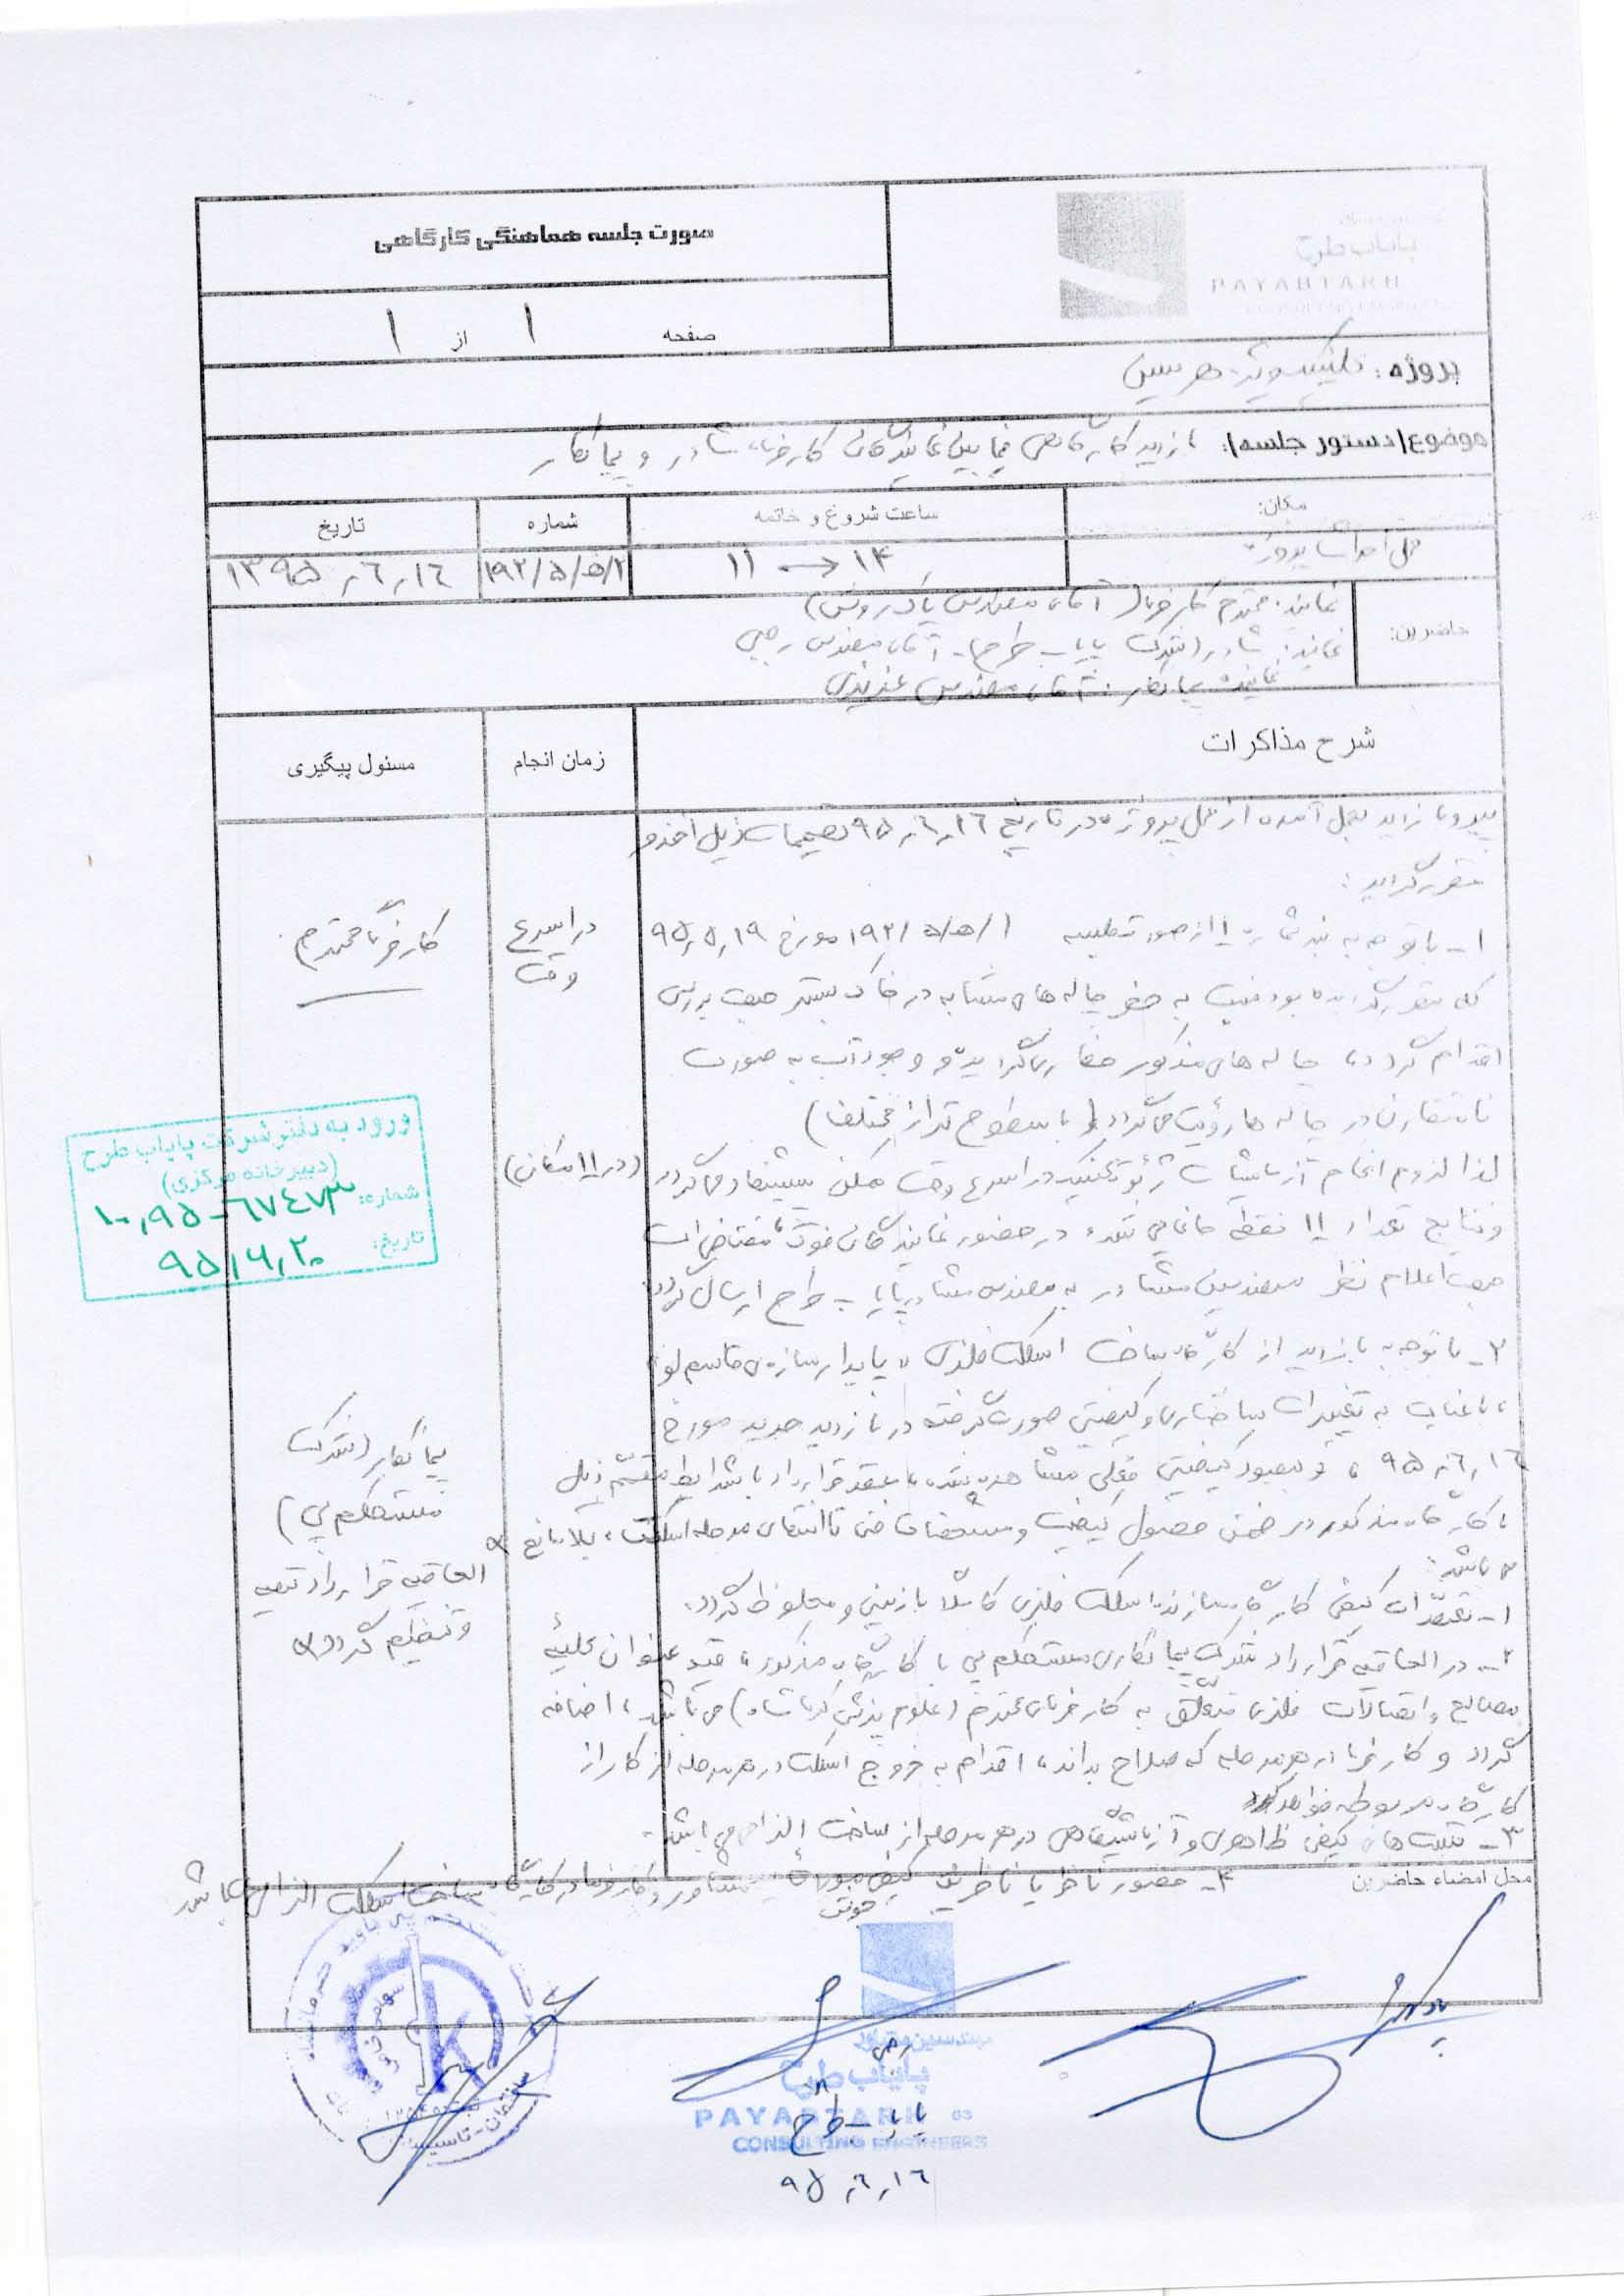 صورت جلسه هماهنگی کارگاهی
پایاب طرح
PAYABTARH
صفحه ۱ از ۱
پروژه: کلینیک ویژه هرسین
موضوع(دستور جلسه): بازدید کارگاهی فیمابین نمایندگان کارفرما، مشاور و پیمانکار
مکان:
ساعت شروع و خاتمه
شماره
تاریخ
محل احداث پروژه
۱۱ → ۱۴
۱۹۲/۵/ه/۲
۱۳۹۵,۶,۱۶
حاضرین:
نماینده محترم کارفرما (آقای مهندس پاک روش)
نماینده مشاور (شرکت پایاب طرح) - آقای مهندس رجبی
نماینده پیمانکار: آقای مهندس عزیزی
شرح مذاکرات
زمان انجام
مسئول پیگیری
پیرو بازدید بعمل آمده از محل پروژه در تاریخ ۹۵,۶,۱۶ تصمیمات ذیل اخذ و
مقرر گردید:
۱- با توجه به بند شماره ۱ از صورتجلسه ۱۹۲/۵/ه/۱ مورخ ۹۵,۵,۱۹
در اسرع وقت
کارفرما محترم
که مقرر گردیده بود نسبت به حفر چاله های مشابه در خاک بستر جهت بررسی
اقدام گردد، چاله های مذکور حفاری گردیده و وجود آب به صورت
نامتقارن در چاله ها رؤیت می گردد (با سطوح تراز مختلف)
لذا لزوم انجام آزمایشات ژئوتکنیک در اسرع وقت ممکن پیشنهاد می گردد (در ۱۱ مکان)
و نتایج تعداد ۱۱ نقطه در حضور نمایندگان فوق
جهت اعلام نظر مهندسین مشاور به مهندس مشاور پایاب طرح ارسال گردد
۲- با توجه به بازدید از کارگاه ساخت اسکلت فلزی پایدار سازه
با عنایت به تغییرات ساختاری و کیفیتی صورت گرفته در بازدید جدید مورخ
۹۵,۶,۱۶ و بهبود کیفیتی فعلی مشاهده شده، عقد قرارداد با شرایط ذیل
با کارگاه مذکور در ضمن حصول کیفیت و مشخصات فنی تا انتهای مرحله اسکلت، بلامانع
می باشد:
پیمانکار (شرکت
مستحکم پی)
الحاقیه قرارداد تهیه
و تنظیم گردد
۱- کیفی کارگاه سازنده اسکلت فلزی کاملاً بازبینی و ملحوظ گردد.
۲- در الحاقیه قرارداد شرکت پیمانکاری مستحکم پی با کارگاه مذکور، قید عنوان کلیه
مصالح و اتصالات فلزی متعلق به کارفرمای محترم (علوم پزشکی کرمانشاه) می باشد، اضافه
گردد و کارفرما در هر مرحله که صلاح بداند، اقدام به خروج اسکلت در هر مرحله از کار از
کارگاه مربوطه خواهد کرد
۳- تست های کیفی ظاهری و آزمایشگاهی در هر مرحله از ساخت الزامی می باشد.
۴- حضور ناظر یا ناظرین کیفی جوش مشاور و کارفرما در کارگاه ساخت اسکلت الزامی می باشد
محل امضاء حاضرین
ورود به دفتر شرکت پایاب طرح
(دبیرخانه مرکزی)
شماره: ۱۰,۹۵-۶۷۴۷۳
تاریخ: ۹۵,۶,۲۰
مهندسین مشاور
پایاب طرح
PAYABTARH
CONSULTING ENGINEERS
رجبی
پایاب طرح
۹۵,۶,۱۶